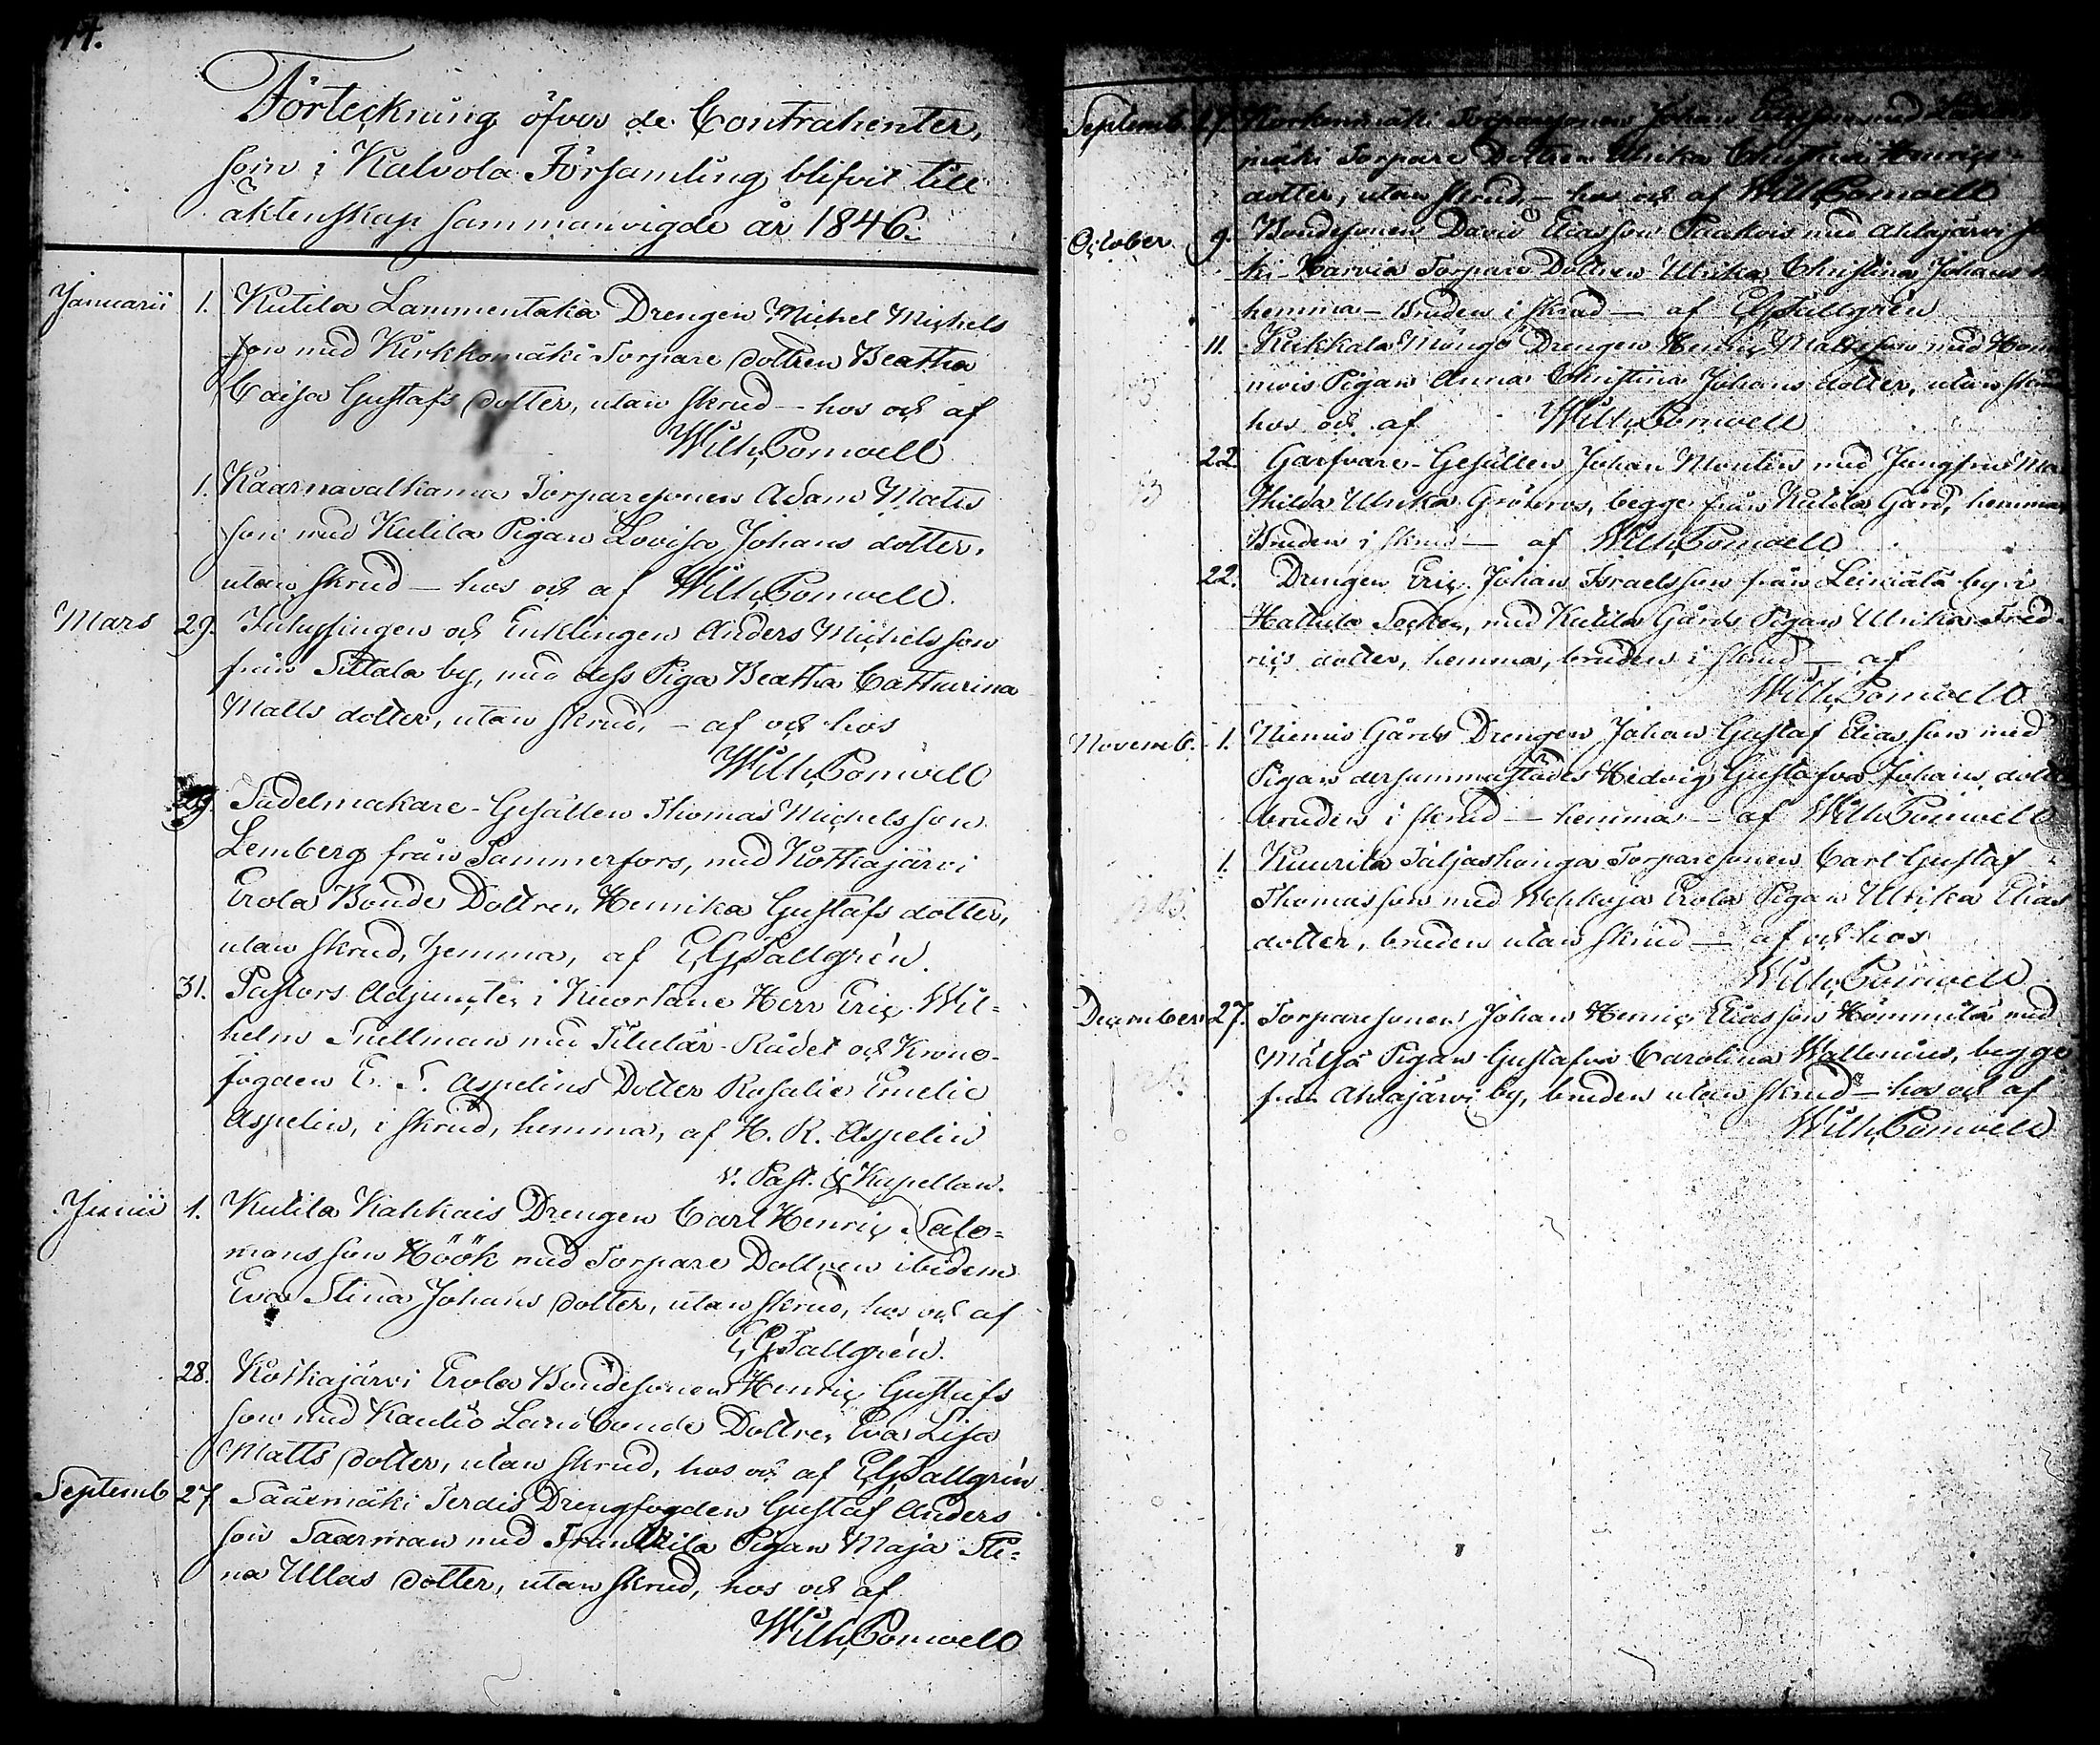 Förteckning öfver de Contrahenter,
som i Kalvola Församling blifvit till
äktenskap sammanvigde år 1846.
Januarii 1. Kutila Lammentaka Drengen Michel Michels
son med Kirkkomäki Torpare dottren Beatha
Caisa Gustafs dotter, utan skrud - hos och af
Wilh. Pomoell
1. Kaarnavalkama Torparesonen Adam Matts
son med Kutila Pigan Lovisa Johans dotter,
utan skrud - hos och af Wilh. Pomoell.
Mars 29. Inhysingen och Enklingen Anders Michelsson
från Sittala by, med dess Piga Beatha Catharina
Matts dotter, utan skrud, - af och hos
Wilh. Pomoell
29. Sadelmakare-Gesällen Thomas Michelsson
Lemberg från Tammerfors, med Kotkajärvi
Erola Bonde Dottren Henrika Gustafs dotter,
utan skrud, hemma, af E. G. Tallgrén.
31. Pastors Adjuncten i Kuortane Herr Eric Wil=
helm Snellman med Titulär-Rådet och Krono-
fogden E. S. Aspelins Dotter Rosalie Emelie
Aspelin, i skrud, hemma, af H. R. Aspelin
v. Past. & Kapellan.
Junii 1. Kutila Kahkais Drengen Carl Henric Salo=
mons son Höök med Torpare Dottren ibidem
Eva Stina Johans dotter, utan skrud, hos och af
E. G. Tallgrén.
28. Kotkajärvi Erola Bondesonen Henric Gustafs
son med Kanlio Landbonde Dottren Eva Lisa
Matts dotter, utan skrud, hos och af E. G. Tallgrén
Septemb. 27 Sääxmäki Terdis Drengfogden Gustaf Anders
son Saarman med Pigan Maja Sti=
na Ullas dotter, utan skrud, hos och af
Wilh. Pomoell
Septemb. 27. Torparesonen Johan med
mäki Torpare Dottren Ulrika Christina Henrics
dotter, utan skrud, - hos och af Wilh. Pomoell
October 9. Bondesonen David Eliasson Paakois med Ahlajärvi
ki-Harvia Torpare Dottren Ulrika Christina Johans
hemma - Bruden i skrud - af E. G. Tallgrén
11. Keikkala Mongo Drengen Henric Mattsson med
Pigan Anna Christina Johans dotter, utan
hos och af Wilh. Pomoell
22. Garfvare-Gesällen Johan Montin med Jungfru Ma
thilda Ulrika Grönroos, begge från Kutila Gård, hemma,
Bruden i skrud - af Wilh. Pomoell
22. Drengen Eric Johan Israelsson från Leiniälä by i
Hattula Socken, med Kutila Gårds Pigan Ulrika Fred-
rics dotter, hemma, bruden i skrud - af
Wilh. Pomoell
Novemb. 1. Niemis Gårds Drengen Johan Gustaf Eliasson med
Pigan dersammastädes Hedvig Gustafva Johans dotter
bruden i skrud - hemma - af Wilh. Pomoell
1. Kuurila Taljashanga Torparesonen Carl Gustaf
Thomasson med Wehkoja Erola Pigan Ulrika Elias
dotter, bruden utan skrud - af och hos
Wilh. Pomoell
December 27. Torparesonen Johan Henric Eliasson Hömmilä med
Mälsä Pigan Gustafva Carolina Wallenius, begge
från Ahlajärvi by, bruden utan skrud - hos och af
Wilh. Pomoell